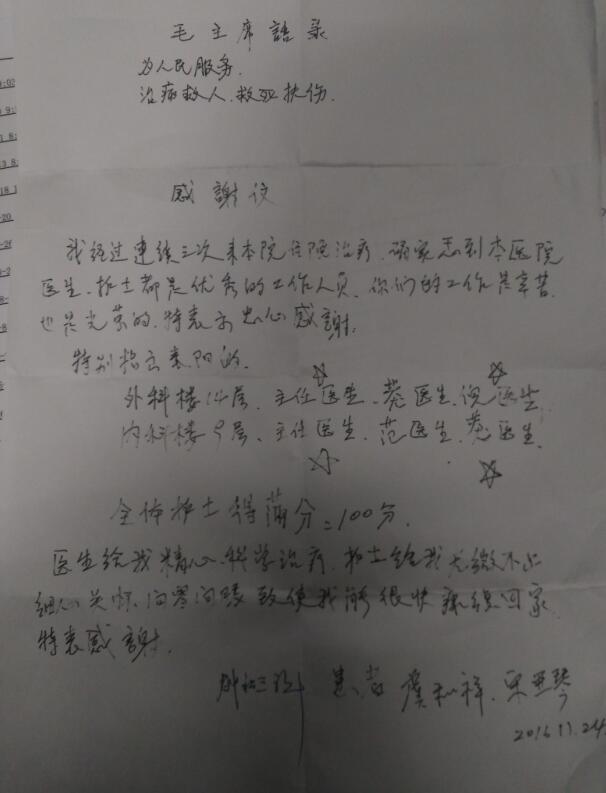 毛主席語录
为人民服务.
治病救人.救死扶伤.
感謝
我经过連续三次来本院住院治疗.确实感到本医院
医生.护士都是优秀的工作人员.你们的工作是辛苦.
也是光荣的.特表示忠心感謝.
特别指出表阳的
外科楼14层、主任医生、蔡医生、倪医生
内科楼9层、主任医生、范医生、医生
全体护士得满分=100分.
医生给我精心.科学治疗.护士给我无微不止
细心关怀.问寒问暖致使我能很快康復回家.
特表感謝.
患者 虞和祥.
2016.11.24.
9:
8:
-20
-8